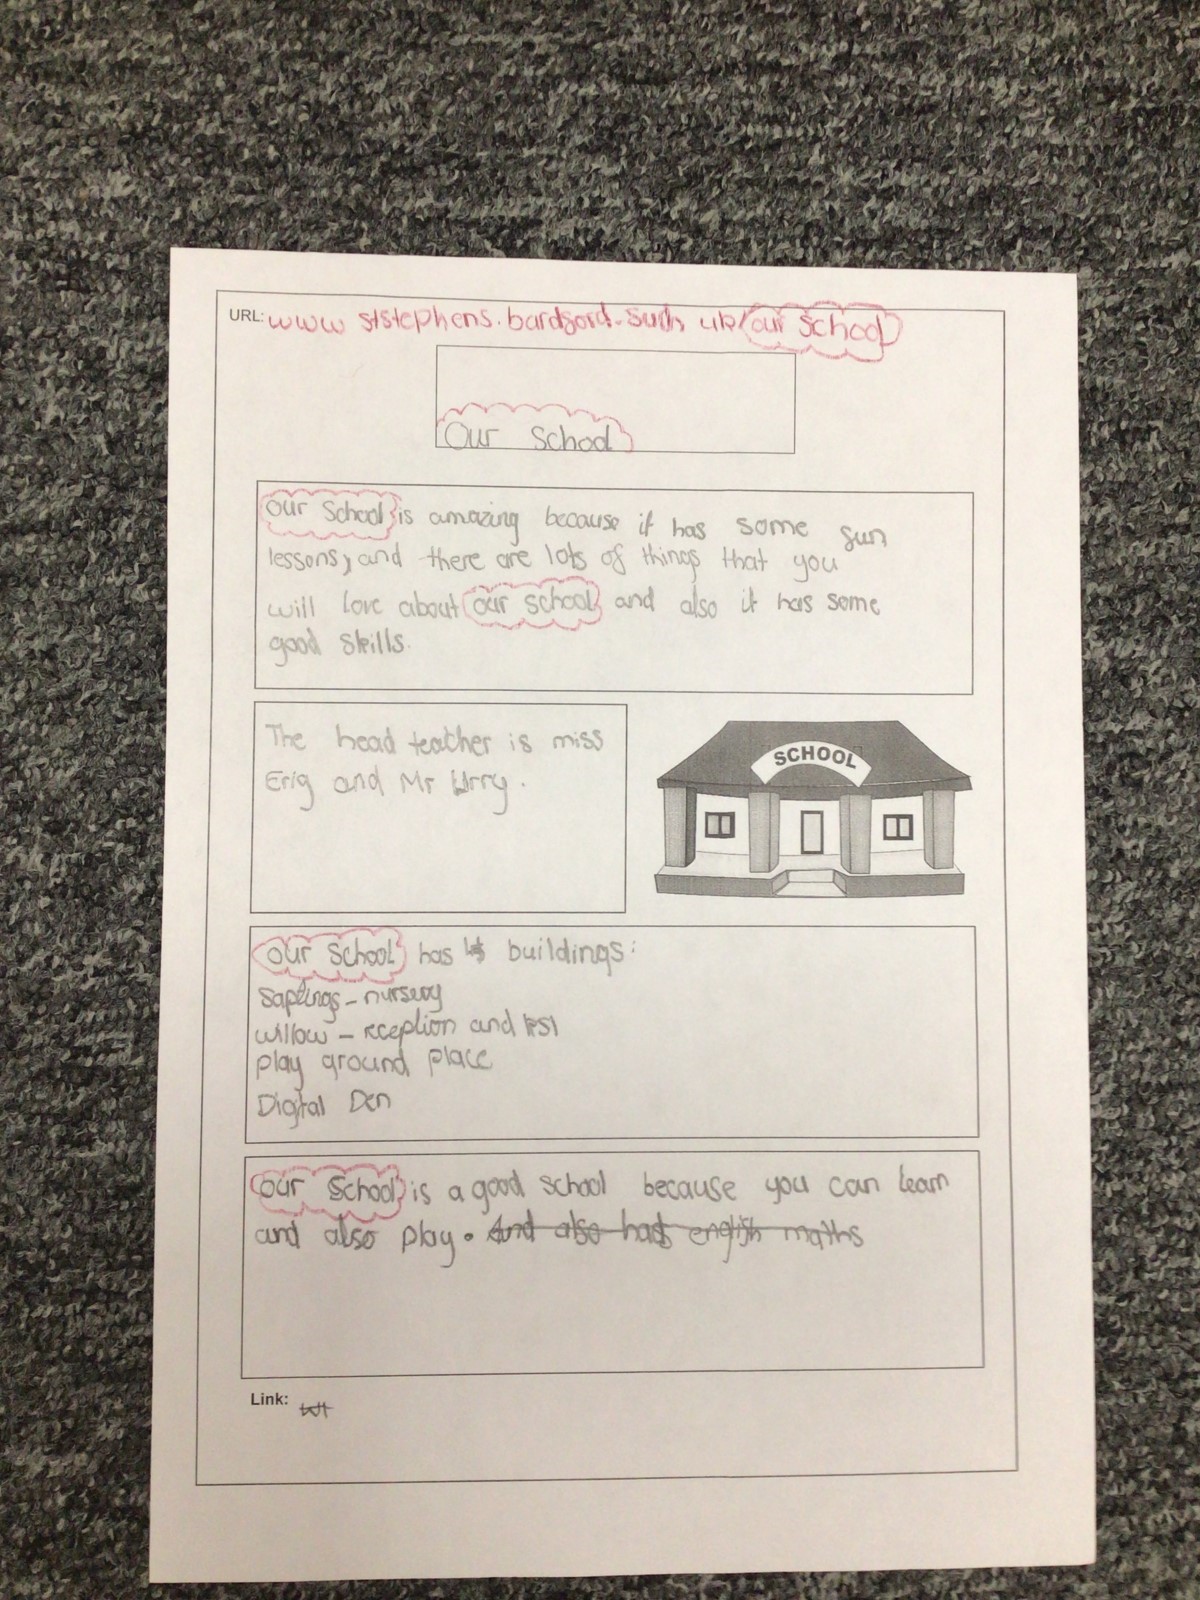 URL: www ststephens.bardsord.such uk/our school
Our School
our School is amazing because it has some sun
lessons, and there are lots of things that you
will love about our school and also it has some
good skills.
The head teacher is miss
Erig and Mr Urry.
SCHOOL
our School has 4 buildings:
Saplings - nursery
willow - reception and KS1
play ground place
Digital Den
our School is a good school because you can learn
and also play. And also has english maths
Link: